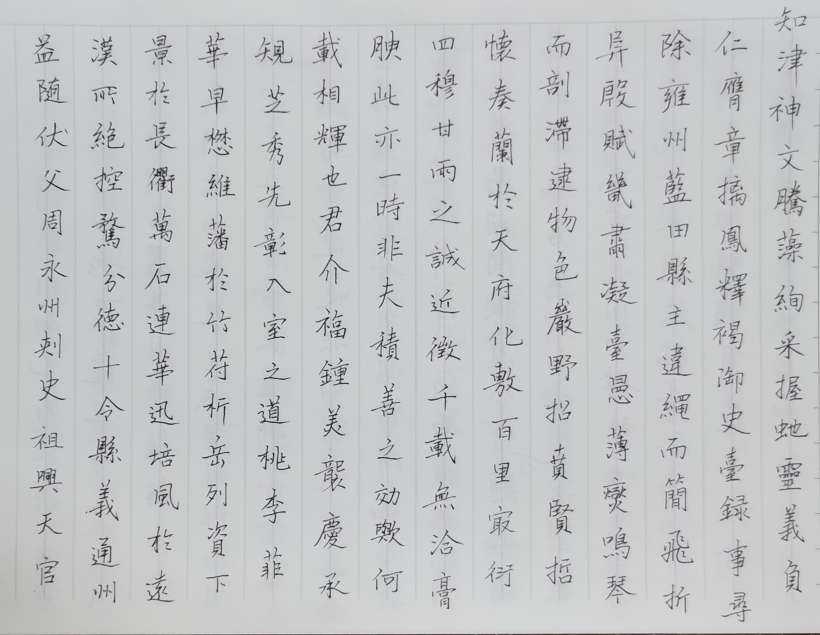 知津神文騰藻絢采握虵靈義負
仁膺章摛鳳釋褐御史臺録事尋
除雍州藍田縣主違繩而簡飛折
异殷賦畿肅凝臺愚薄爕鳴琴
而剖滯逮物色巖野招賁賢哲
懷奏蘭於天府化敷百里寂衍
四穆甘雨之誠近徵千載無洽膏
腴此亦一時非夫積善之効歟何
載相輝也君介福鍾美襲慶承
規芝秀先彰入室之道桃李菲
華早懋維藩於竹苻析岳列資下
景於長衢萬石連華迅培風於遠
漢所絕控鶩分德十令縣義通州
益隨伏父周永州刺史祖興天官